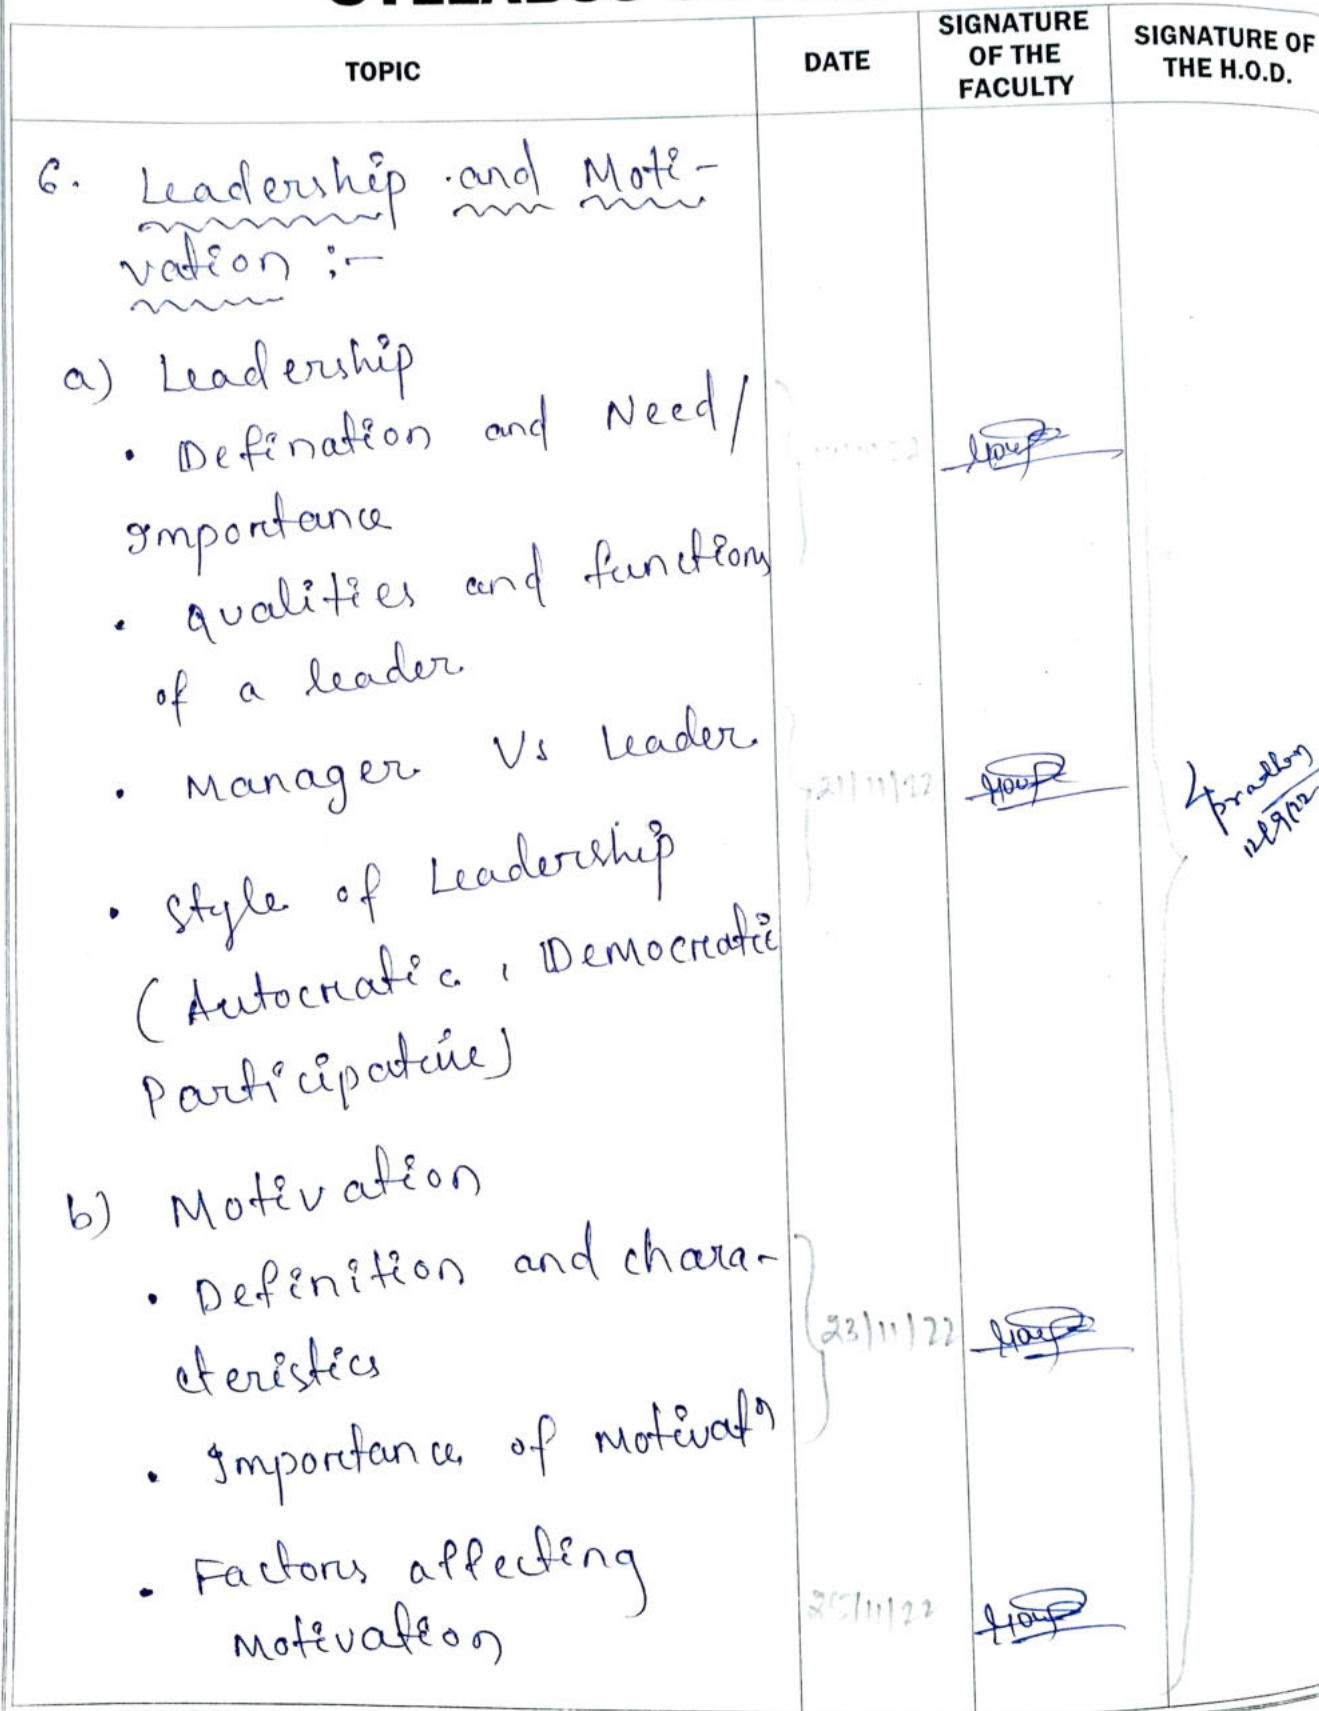 TOPIC
DATE
SIGNATURE
OF THE
FACULTY
SIGNATURE OF
THE H.O.D.
6. Leadership and Moti-
vation :-
a) Leadership
• Defination and Need/
Importance
• qualities and functions
of a leader
• Manager Vs Leader
21/11/22
• Style of Leadership
(Autocratic, Democratic
Participative)
b) Motivation
• Definition and chara-
cteristics
23/11/22
• Importance of motivatn
• Factors affecting
Motivation
25/11/22